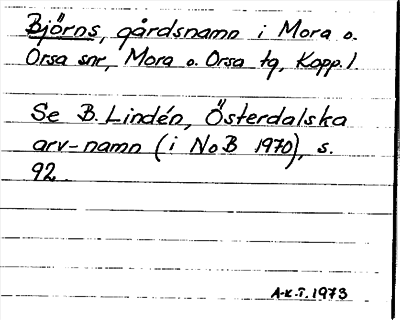 Björns, gårdsnamn i Mora o.
Orsa snr, Mora o. Orsa tg, Kopp. l.
Se B. Lindén, Österdalska
arv-namn (i NoB 1970), s.
92.
A-K.T. 1973